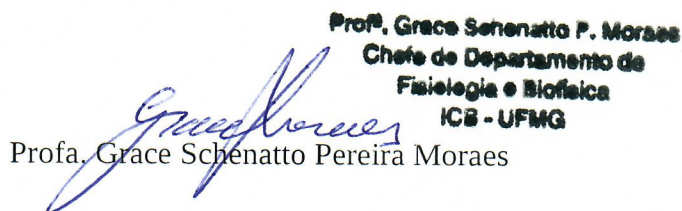 Profª. Grace Schenatto P. Moraes
Chefe de Departamento de
Fisiologia e Biofísica
ICB - UFMG
Grace Moraes
Profa. Grace Schenatto Pereira Moraes